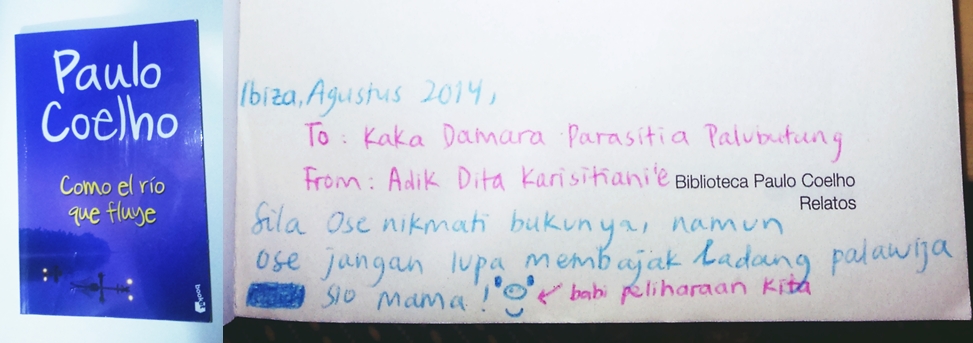 Paulo
Coelho
Como el río
que fluye
book
Ibiza, Agustus 2014,
To: Kaka Damara Parasitia Palubutung
From: Adik Dita Karisitiani'e
Biblioteca Paulo Coelho
Relatos
Sila Ose nikmati bukunya, namun
ose jangan lupa membajak Ladang palawija
sio mama! ← babi peliharaan kita